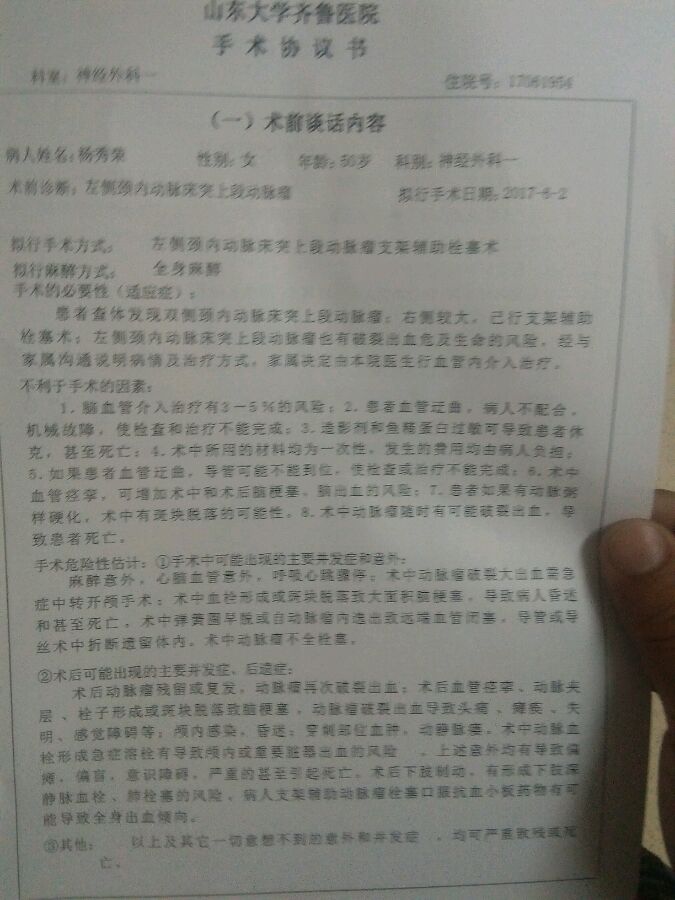 山东大学齐鲁医院
手术协议书
科室：神经外科一 住院号：17061954
（一）术前谈话内容
病人姓名：杨秀荣 性别：女 年龄：50岁 科别：神经外科一
术前诊断：左侧颈内动脉床突上段动脉瘤 拟行手术日期：2017-6-2
拟行手术方式： 左侧颈内动脉床突上段动脉瘤支架辅助栓塞术
拟行麻醉方式： 全身麻醉
手术的必要性（适应症）：
患者查体发现双侧颈内动脉床突上段动脉瘤；右侧较大，已行支架辅助
栓塞术；左侧颈内动脉床突上段动脉瘤也有破裂出血危及生命的风险，经与
家属沟通说明病情及治疗方式，家属决定由本院医生行血管内介入治疗。
不利于手术的因素：
1．脑血管介入治疗有3－5％的风险；2．患者血管迂曲，病人不配合，
机械故障，使检查和治疗不能完成；3．造影剂和鱼精蛋白过敏可导致患者休
克，甚至死亡；4．术中所用的材料均为一次性，发生的费用均由病人负担；
5．如果患者血管迂曲，导管可能不能到位，使检查或治疗不能完成；6．术中
血管痉挛，可增加术中和术后脑梗塞，脑出血的风险；7．患者如果有动脉粥
样硬化，术中有斑块脱落的可能性。8．术中动脉瘤随时有可能破裂出血，导
致患者死亡。
手术危险性估计：①手术中可能出现的主要并发症和意外：
麻醉意外，心脑血管意外，呼吸心跳骤停；术中动脉瘤破裂大出血需急
症中转开颅手术；术中血栓形成或斑块脱落致大面积脑梗塞，导致病人昏迷
和甚至死亡，术中弹簧圈早脱或自动脉瘤内逸出致远端血管闭塞，导管或导
丝术中折断遗留体内。术中动脉瘤不全栓塞。
②术后可能出现的主要并发症、后遗症：
术后动脉瘤残留或复发，动脉瘤再次破裂出血；术后血管痉挛、动脉夹
层、栓子形成或斑块脱落致脑梗塞，动脉瘤破裂出血导致头痛、瘫痪、失
明、感觉障碍等；颅内感染，昏迷；穿刺部位血肿，动静脉瘘。术中动脉血
栓形成急症溶栓有导致颅内或重要脏器出血的风险 。上述意外均有导致偏
瘫，偏盲，意识障碍，严重的甚至引起死亡。术后下肢制动，有形成下肢深
静脉血栓、肺栓塞的风险。病人支架辅助动脉瘤栓塞口服抗血小板药物有可
能导致全身出血倾向。
③其他： 以上及其它一切意想不到的意外和并发症 ，均可严重致残或死
亡。